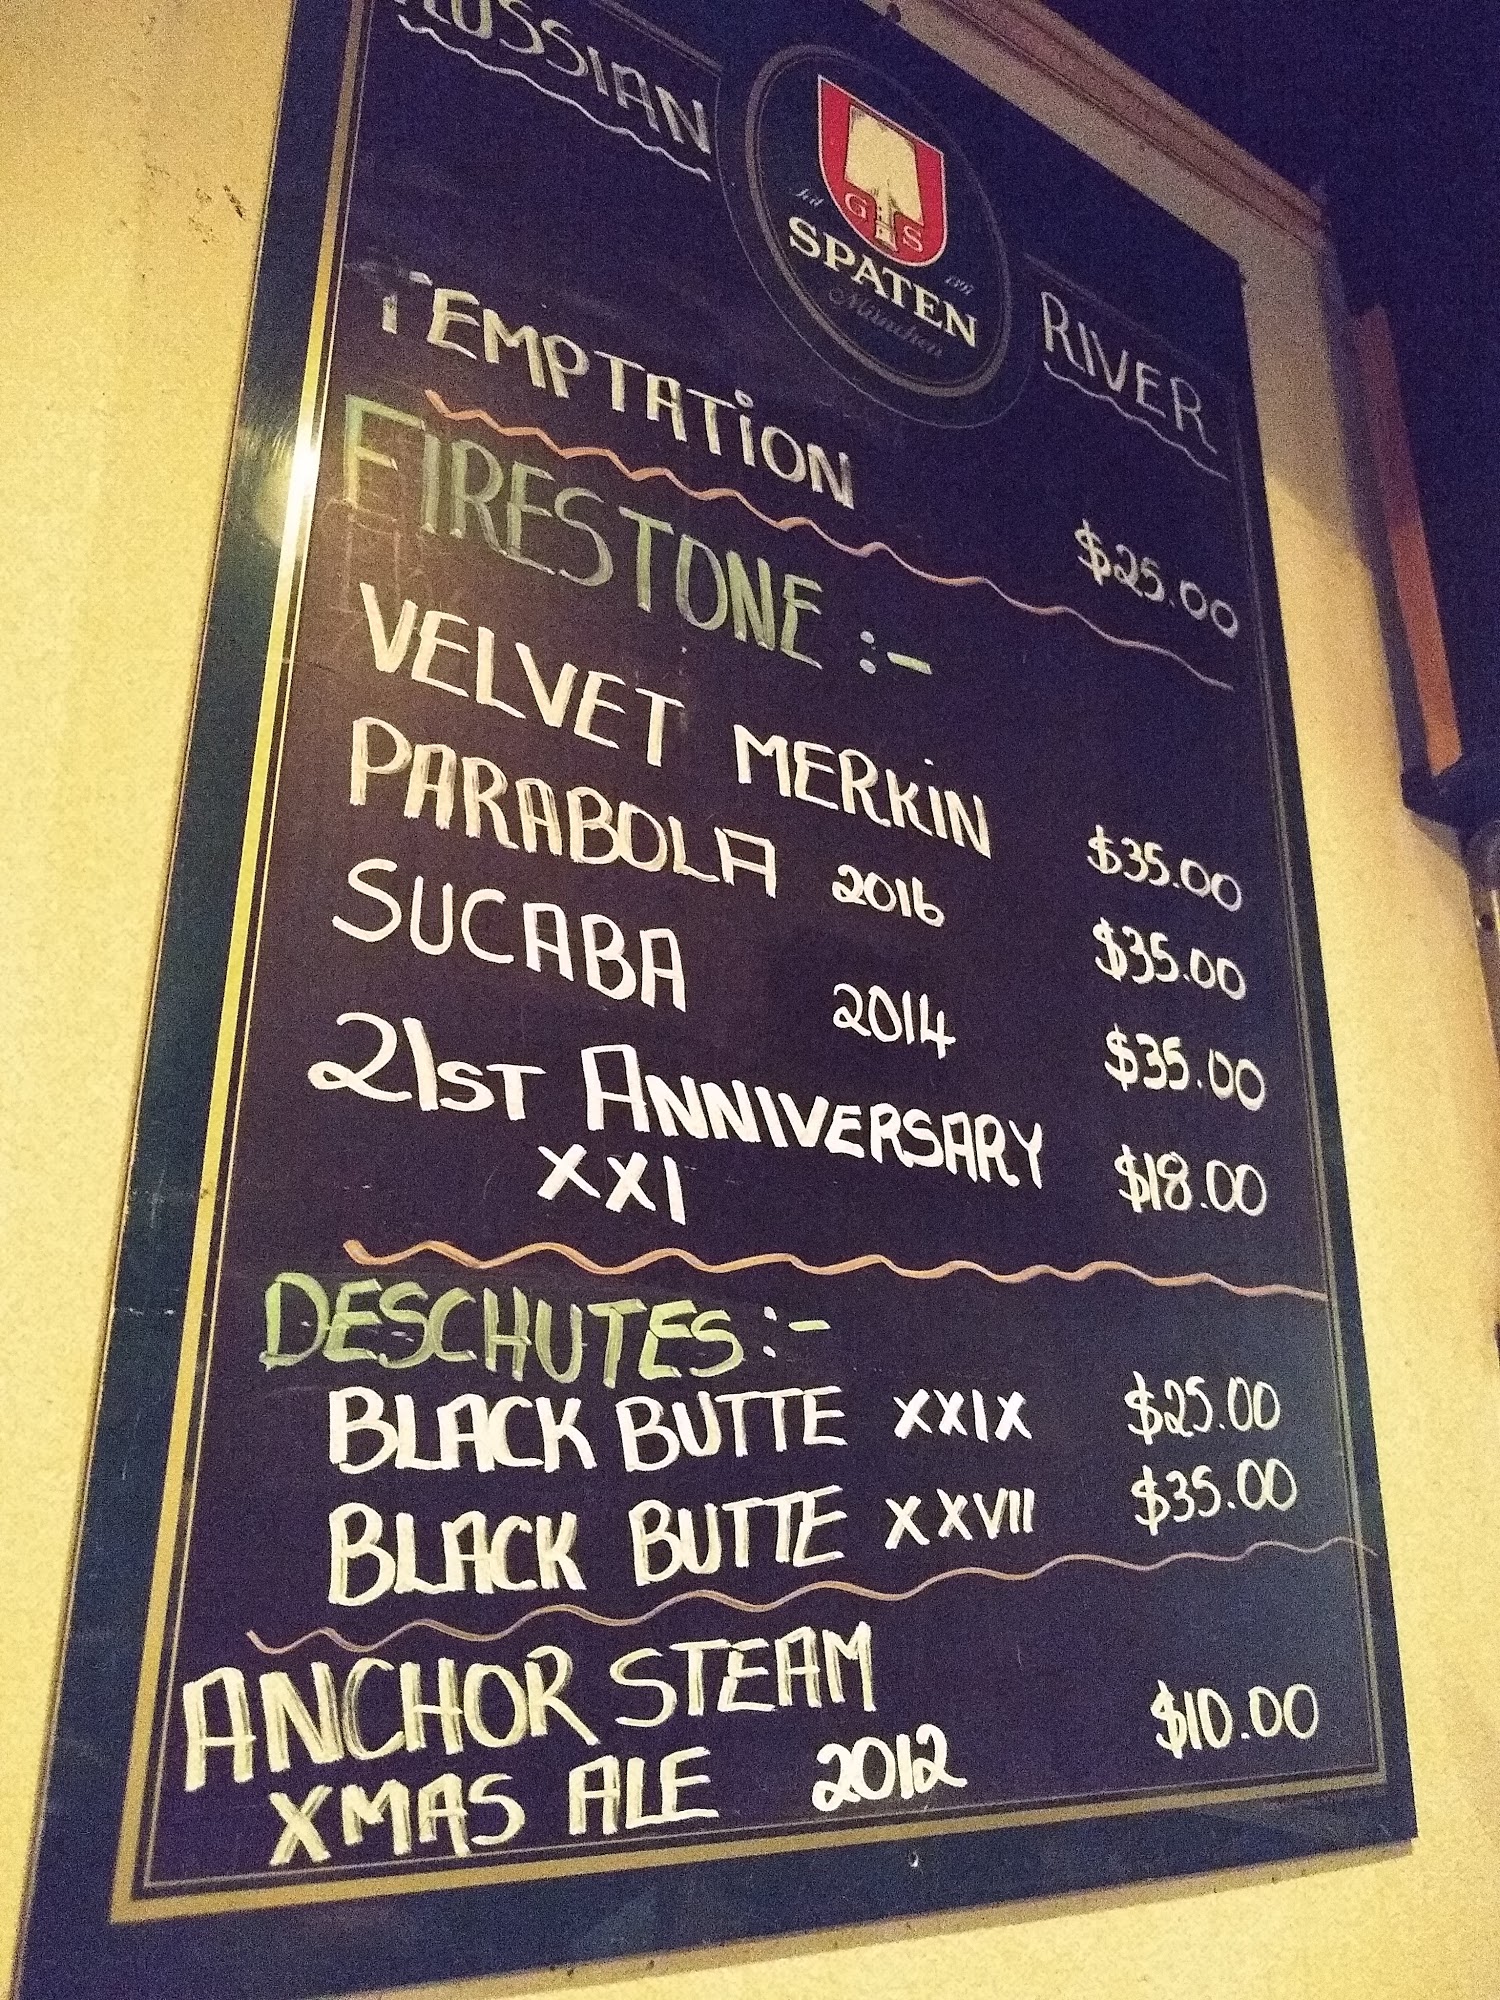 RUSSIAN RIVER
G S
Seit 1397
SPATEN
München
TEMPTATION $25.00
FIRESTONE :-
VELVET MERKIN $35.00
PARABOLA 2016 $35.00
SUCABA 2014 $35.00
21ST ANNIVERSARY $18.00
XXI
DESCHUTES :-
BLACK BUTTE XXIX $25.00
BLACK BUTTE XXVII $35.00
ANCHOR STEAM $10.00
XMAS ALE 2012